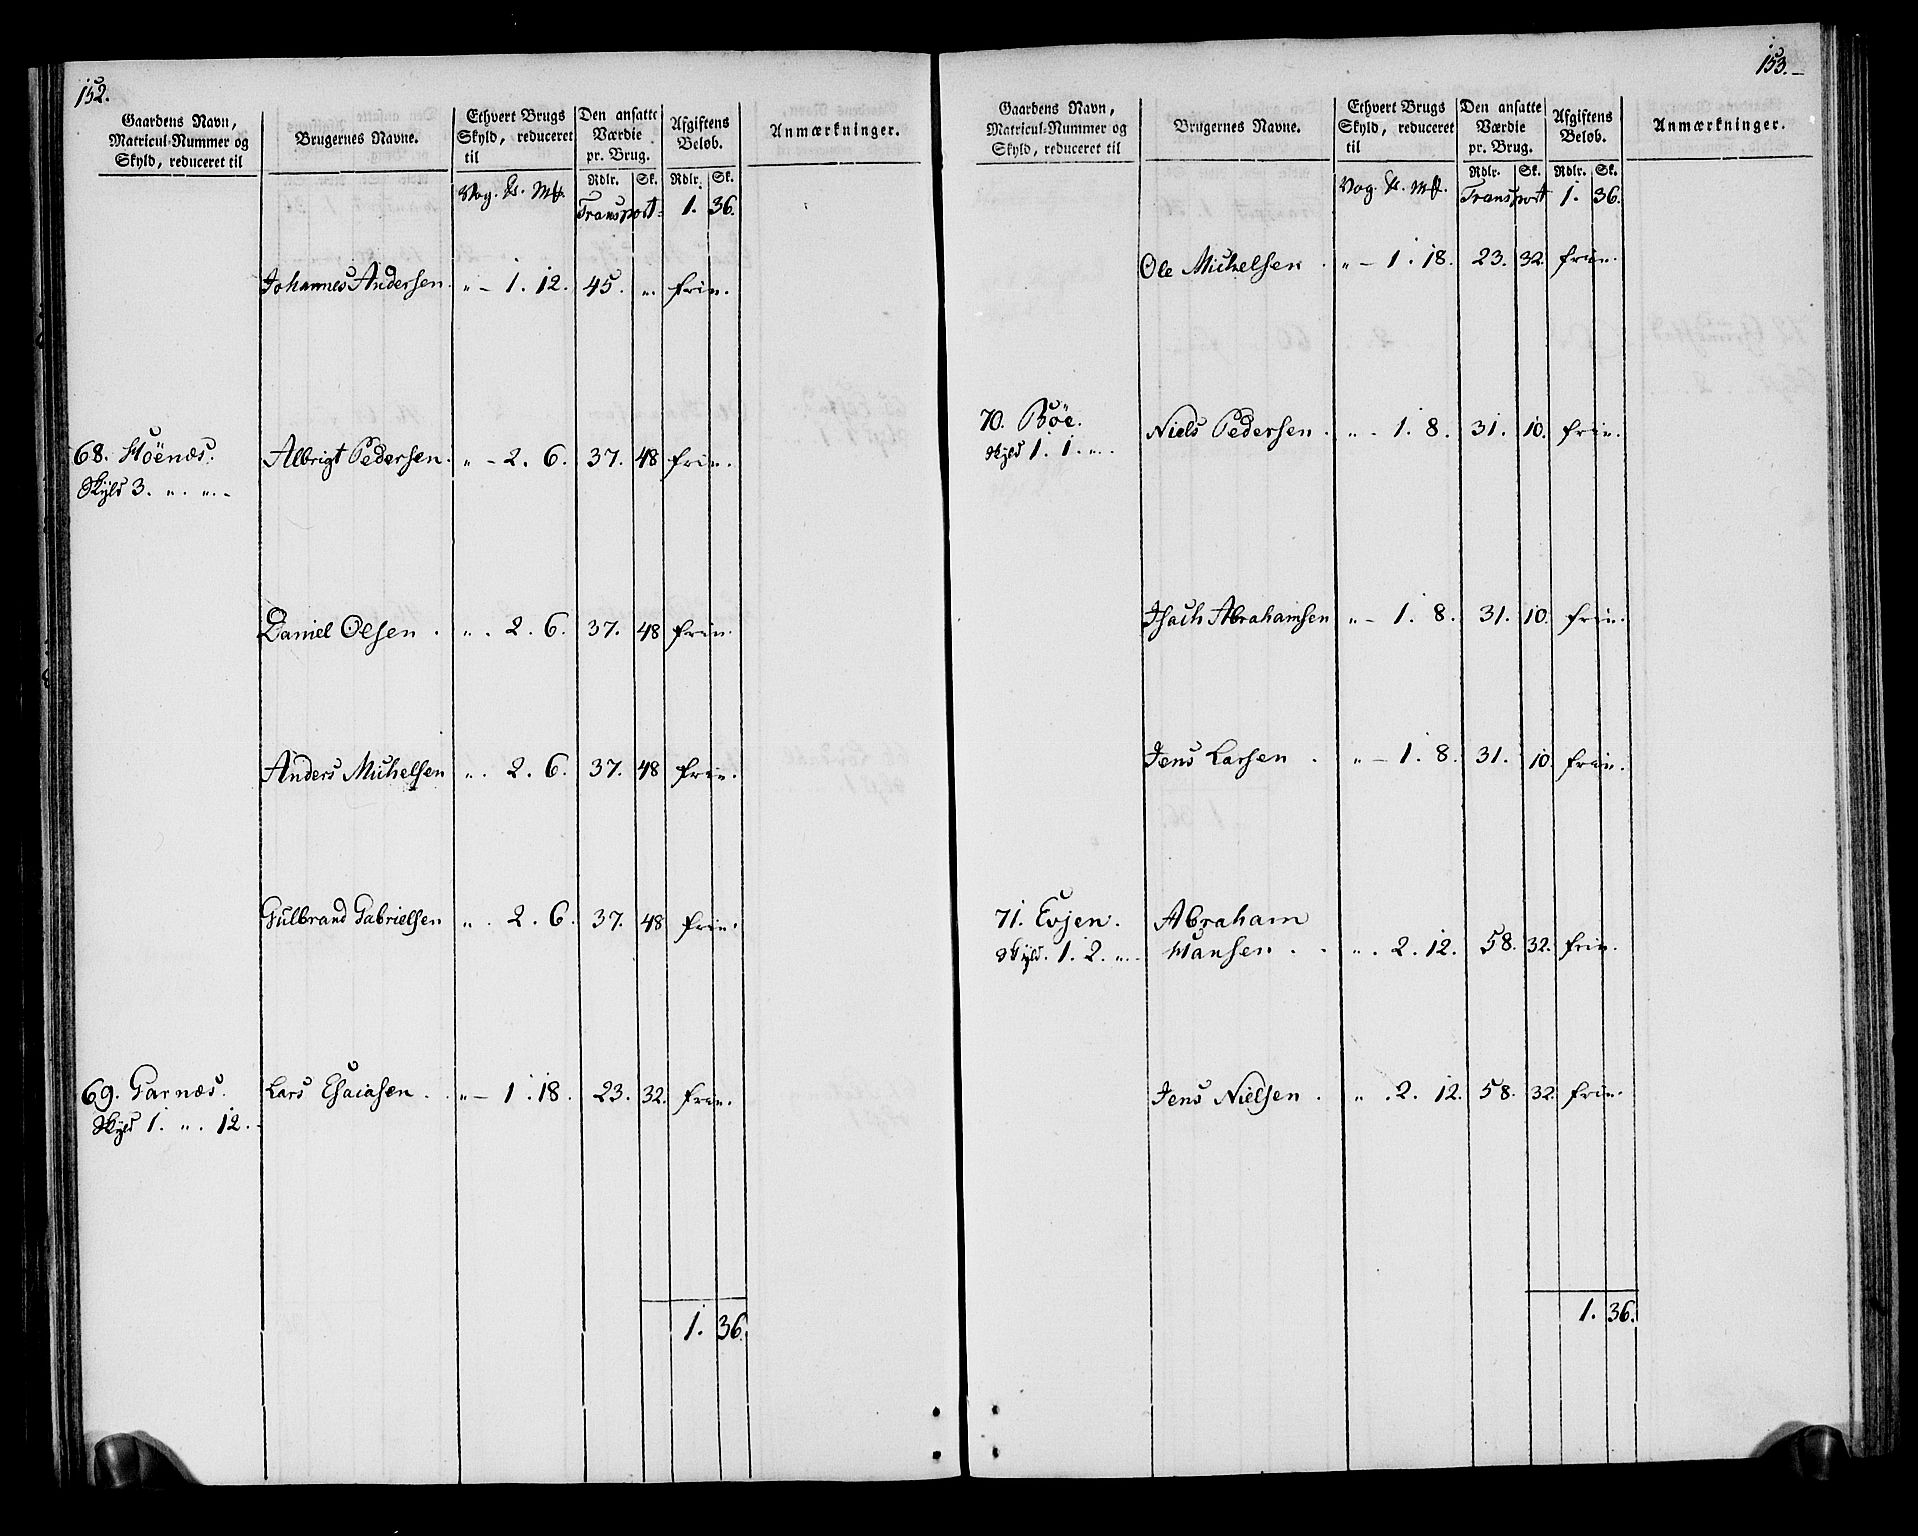 152.
Gaardens Navn, Matricul-Nummer og Skyld, reduceret til
Brugernes Navne.
Ethvert Brugs Skyld, reduceret til
Den ansatte Værdie pr. Brug.
Afgiftens Beløb.
Anmærkninger.
Rdlr. Sk. Rdlr. Sk.
Vog. Transport 1. 36.
Johannes Andersen. „ - 1. 12. 45. „. frin.
68. Høenæs. Albrigt Pedersen. „ - 2. 6. 37. 48 frin.
Skyld 3. „. „. -
Daniel Olsen . „ . 2. 6. 37. 48 frin.
Anders Michelsen „ . 2. 6. 37. 48 frin.
Gulbrand Gabrielsen „ . 2. 6. 37. 48 frin.
69. Garnæs. Lars Esaiasen . „ - 1. 18. 23. 32. frin.
Skyld 1. „. 12.
1. 36.
153.
Gaardens Navn, Matricul-Nummer og Skyld, reduceret til
Brugernes Navne.
Ethvert Brugs Skyld, reduceret til
Den ansatte Værdie pr. Brug.
Afgiftens Beløb.
Anmærkninger.
Rdlr. Sk. Rdlr. Sk.
Vog. Transport 1. 36.
Ole Michelsen . „ - 1. 18. 23. 32. frin.
70. Böe. Niels Pedersen . „ - 1. 8. 31. 10. frin.
Skyld 1. 1. „.
Isach Abrahamsen „ - 1. 8. 31. 10. frin.
Jens Larsen . „ - 1. 8. 31. 10. frin.
71. Evjen. Abraham
Skyld. 1. 2. „. Hansen . . „ . 2. 12. 58. 32. frin.
Jens Nielsen . „ . 2. 12. 58. 32. frin.
1. 36.